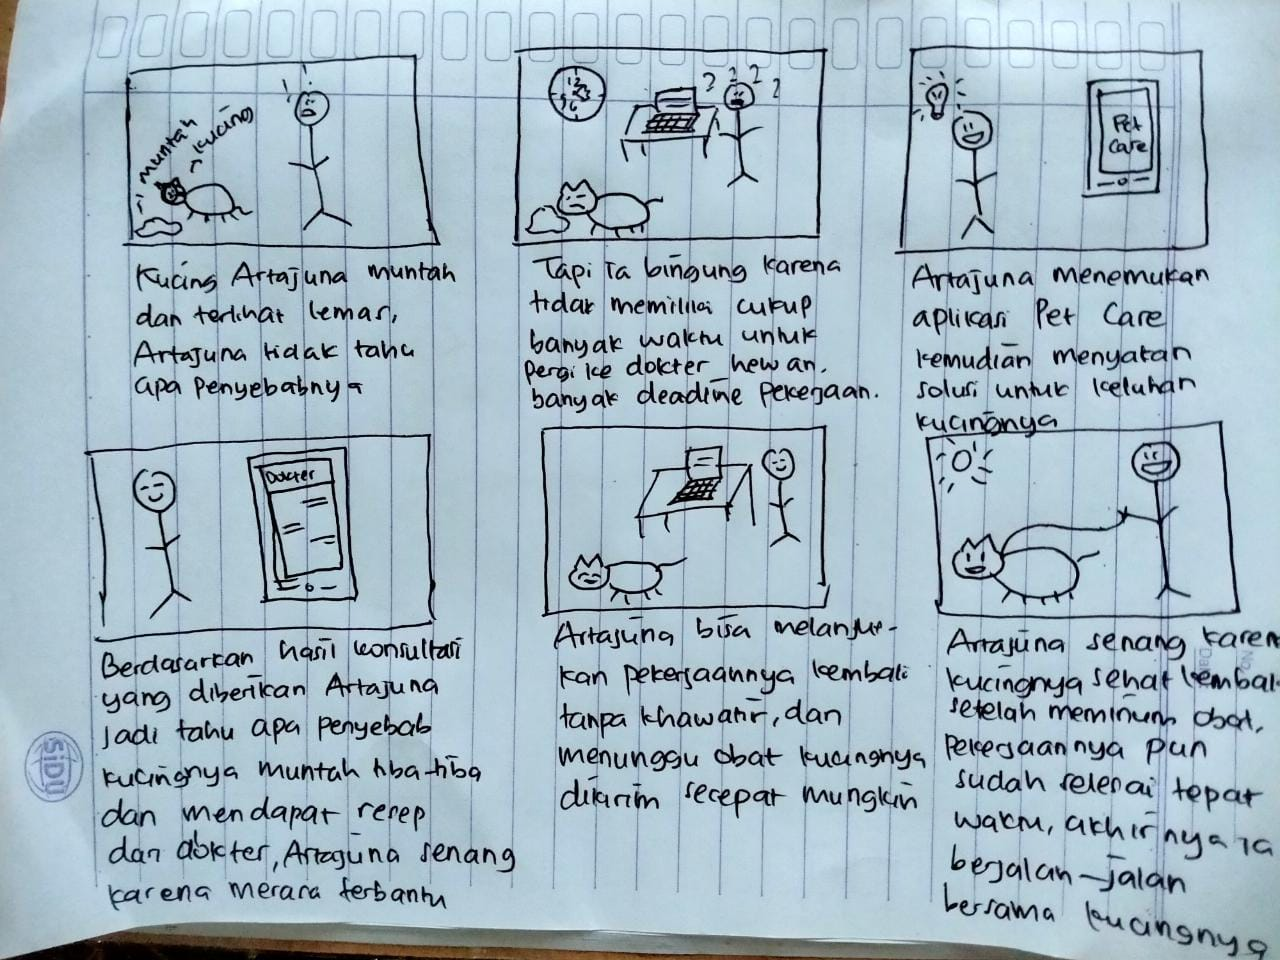 muntah
kucing
Kucing Artajuna muntah
dan terlihat lemas,
Artajuna tidak tahu
apa penyebabnya
12
3
6
9
? ? ? ?
Tapi ia bingung karena
tidak memiliki cukup
banyak waktu untuk
pergi ke dokter hewan.
banyak deadline pekerjaan.
Pet
Care
Artajuna menemukan
aplikasi Pet Care
kemudian menyatan
solusi untuk keluhan
kucingnya
Dokter
Berdasarkan hasil konsultasi
yang diberikan Artajuna
jadi tahu apa penyebab
kucingnya muntah tiba-tiba
dan mendapat resep
dari dokter, Artajuna senang
karena merasa terbantu
Artajuna bisa melanjut-
kan pekerjaannya kembali
tanpa khawatir, dan
menunggu obat kucingnya
dikirim secepat mungkin
Artajuna senang karen
kucingnya sehat kembali
setelah meminum obat.
Pekerjaannya pun
sudah selesai tepat
waktu, akhirnya ia
berjalan-jalan
bersama kucingnya
SIDU
No
Da